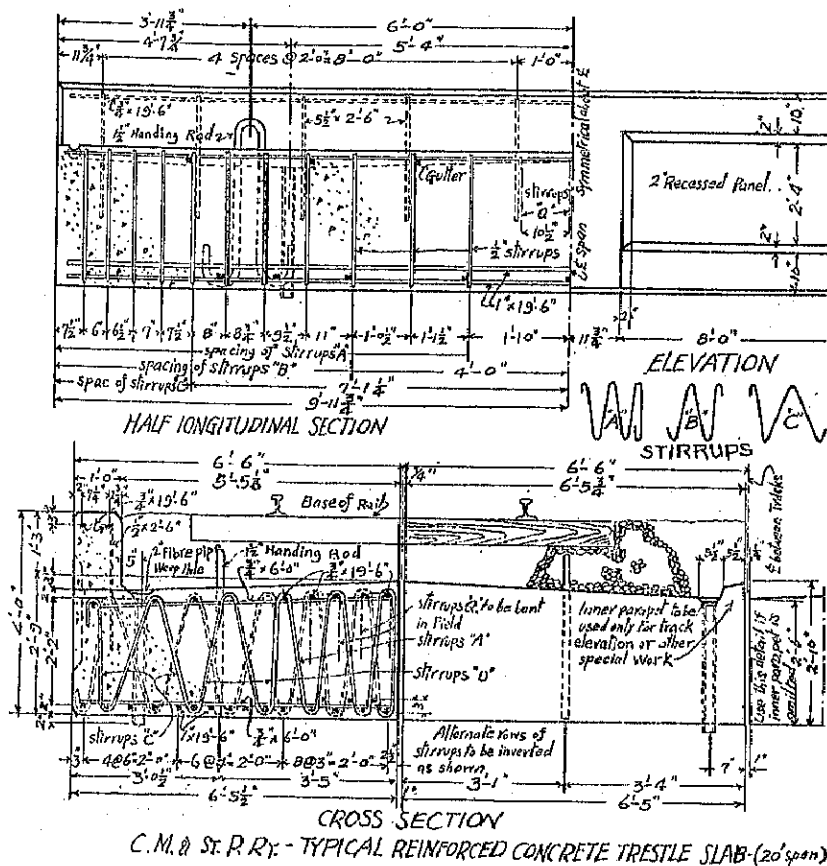 3'-11 3/4" 6'-0"
4'-7 3/4" 5'-4"
11 3/4" 4 spaces @ 2'-0"=8'-0" 1'-0"
1-3/4" x 19'-6"
1 1/2" Handing Rod
5 1/2" x 2'-6"
Gutter
stirrups
"Q"
10 1/2"
1/2" stirrups
1" x 19'-6"
Symmetrical about ℄
℄ Span
2" Recessed Panel
2" 10"
2'-4"
2" 10"
7 1/2" 6" 6 1/2" 7" 7 1/2" 8" 8 3/4" 9 1/2" 11" 1'-0 1/2" 1'-1 1/2" 1'-10" 11 3/4" 8'-0"
spacing of stirrups "A"
spacing of stirrups "B" 4'-0"
spac of stirrups "C" 7'-1 1/4"
9'-11 3/4"
ELEVATION
HALF LONGITUDINAL SECTION
"A" "B" "C"
STIRRUPS
6'-6" 6'-6"
5'-5 1/8" 1/4" 6'-5 3/4"
1'-0"
3/4" x 19'-6"
Base of Rail
1/2" x 2'-6"
2" Fibre pip
Weep Hole
1 1/2" Handing Rod
3/4" x 6'-0" 3/4" x 19'-6"
4'-0" 1'-3" 2'-9" 2'-2"
stirrups "Q" to be bent
in Field
stirrups "A"
stirrups "D"
Inner parapet to be
used only for track
elevation or other
special work
5 1/2" 5 1/2"
℄ between Tracks
Use this detail if
inner parapet is
omitted
2'-6"
2'-10"
stirrups "C" 1" x 19'-6" 3/4" x 6'-0"
Alternate rows of
stirrups to be inverted
as shown
3" 4@6"=2'-0" 6@4"=2'-0" 8@3"=2'-0" 2 1/2"
3'-0 1/2" 3'-5" 3'-1" 3'-4" 7" 1"
6'-5 1/2" 1" 6'-5"
CROSS SECTION
C.M.& ST. P. RY. - TYPICAL REINFORCED CONCRETE TRESTLE SLAB-(20' span)